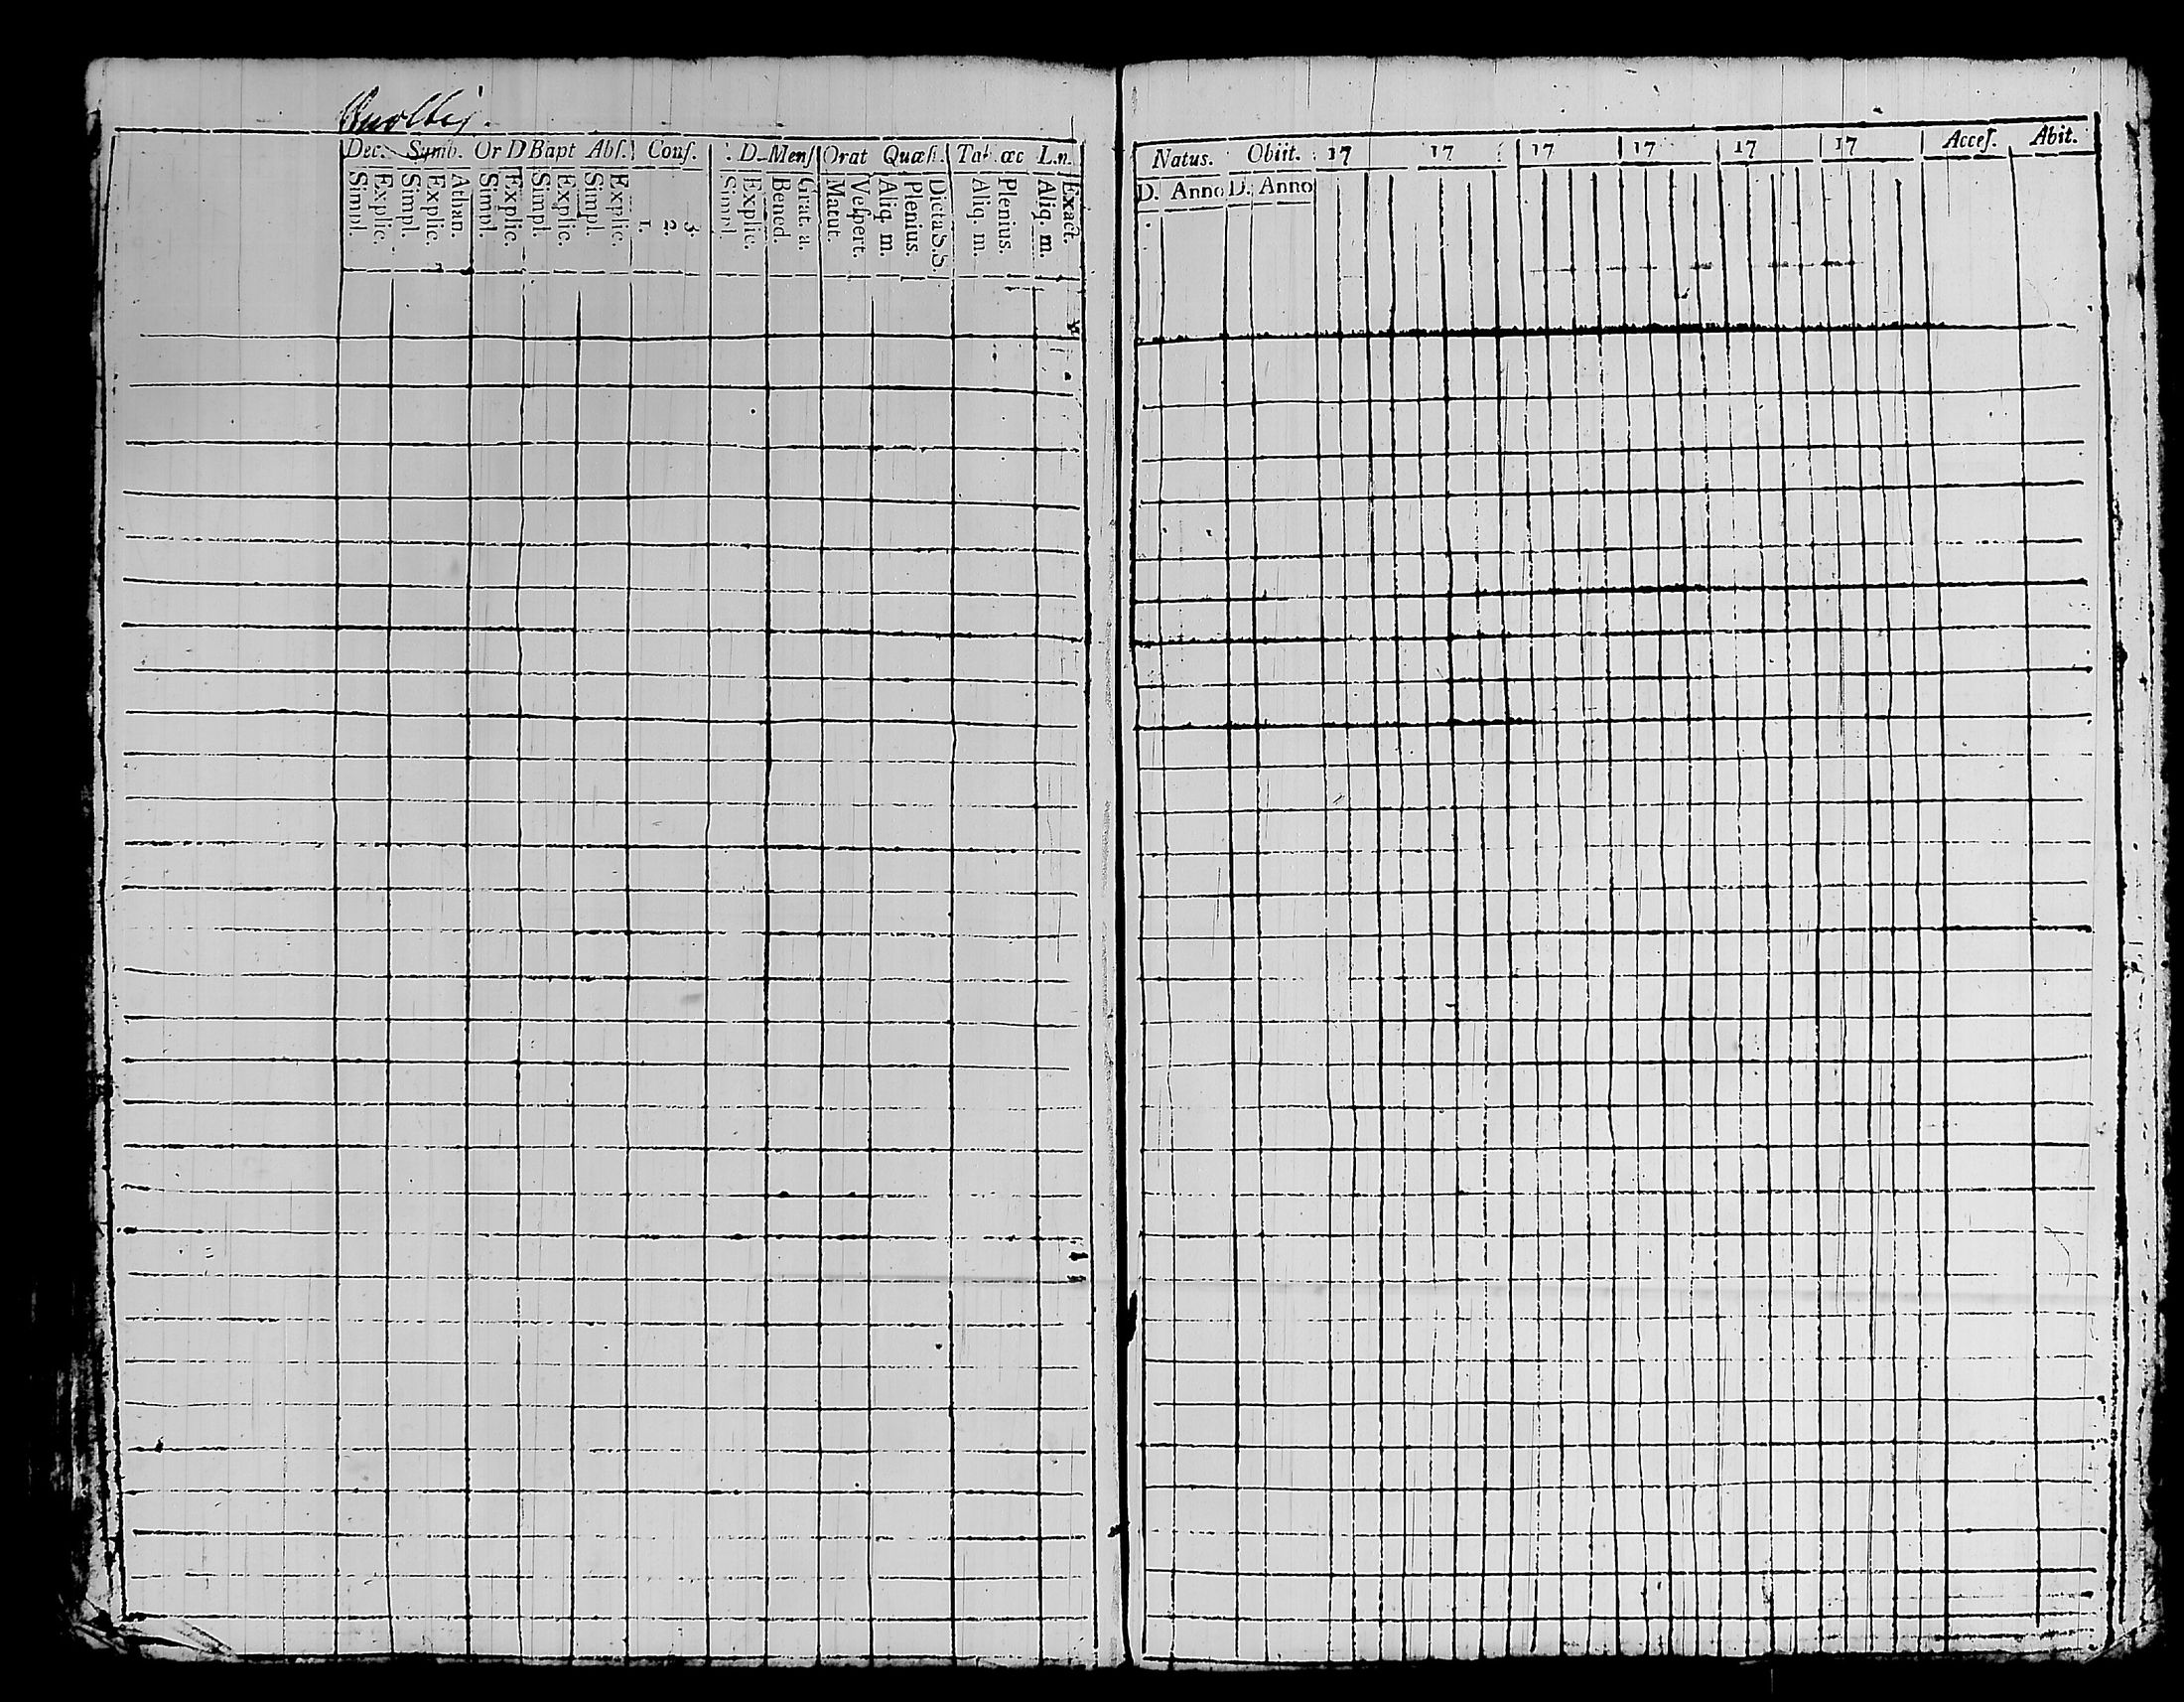 Dec. Symb. Or D Bapt Abs. Conf. D. Mens Orat Quæst. Tab œc L.n.
Simpl. Explic. Simpl. Explic. Athan. Simpl. Explic. Simpl. Explic. Simpl. Explic. 1. 2. 3. Simpl. Explic. Bened. Grat. a. Matut. Vespert. Aliq. m. Plenius. Dicta S.S. Aliq. m. Plenius. Aliq. m. Exact.
Natus. Obiit. 17 17 17 17 17 17 Acces. Abit.
D. Anno D. Anno